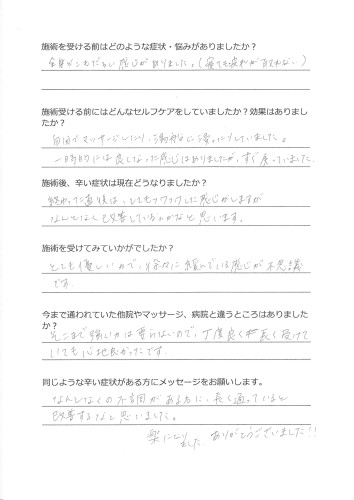 施術を受ける前はどのような症状・悩みがありましたか？
全身がこもだるい感じがありました。(寝ても疲れが取れない)
施術受ける前にはどんなセルフケアをしていましたか？効果はありましたか？
自由でマッサージしたり、湯船に浸ったりしていました。
一時的には良くなった感じはありましたが、すぐ戻っていました
施術後、辛い症状は現在どうなりましたか？
終わった直後は、とてもフワフワした感じがしますが
なんとなく改善しているのかなと思います。
施術を受けてみていかがでしたか？
とても優しいので、体が緩んでいる感じが不思議
です。
今まで通われていた他院やマッサージ、病院と違うところはありましたか？
そこまで強い力は要らないので、丁度良く長く受けて
いても心地良かったです。
同じような辛い症状がある方にメッセージをお願いします。
なんとなくの不調がある方に、長く通っていると
改善するなと思いました。
楽になりました ありがとうございました!!